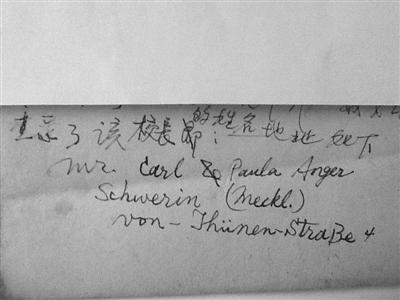 了该校长
的姓名地址如下
Mr. Carl & Paula Anger
Schwerin (Meckl.)
von-Thünen-Straße 4